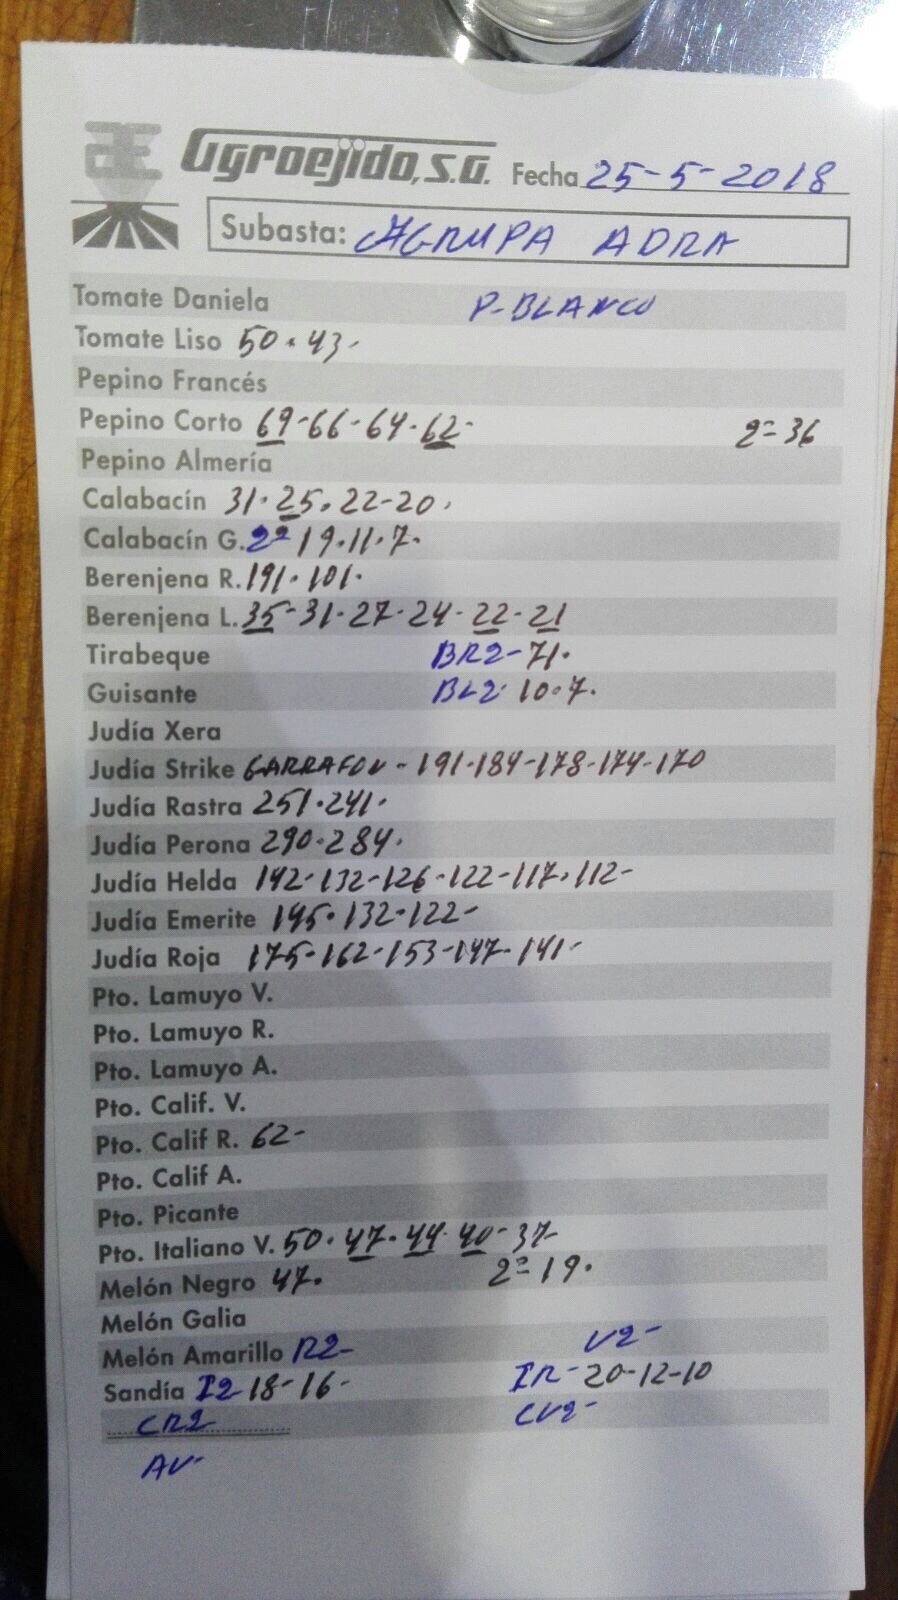 Agroejido, S.A. Fecha 25-5-2018
Subasta: AGRUPA ADRA
Tomate Daniela P-BLANCO
Tomate Liso 50.43-
Pepino Francés
Pepino Corto 69-66-64.62- 2ª 36
Pepino Almería
Calabacín 31.25.22-20.
Calabacín G. 2ª 19.11.7.
Berenjena R. 191.101.
Berenjena L. 35-31-27-24-22-21
Tirabeque BR2-71.
Guisante BL2 10.7.
Judía Xera
Judía Strike GARRAFON-191-184-178-174-170
Judía Rastra 251.241.
Judía Perona 290.284.
Judía Helda 142-132-126-122-117.112-
Judía Emerite 145.132.122-
Judía Roja 175-162-153-147-141-
Pto. Lamuyo V.
Pto. Lamuyo R.
Pto. Lamuyo A.
Pto. Calif. V.
Pto. Calif R. 62-
Pto. Calif A.
Pto. Picante
Pto. Italiano V. 50.47.44.40-37-
Melón Negro 47. 2ª 19.
Melón Galia
Melón Amarillo R2- V2-
Sandía I2 18-16- IR-20-12-10
CR2 CV2-
AV-